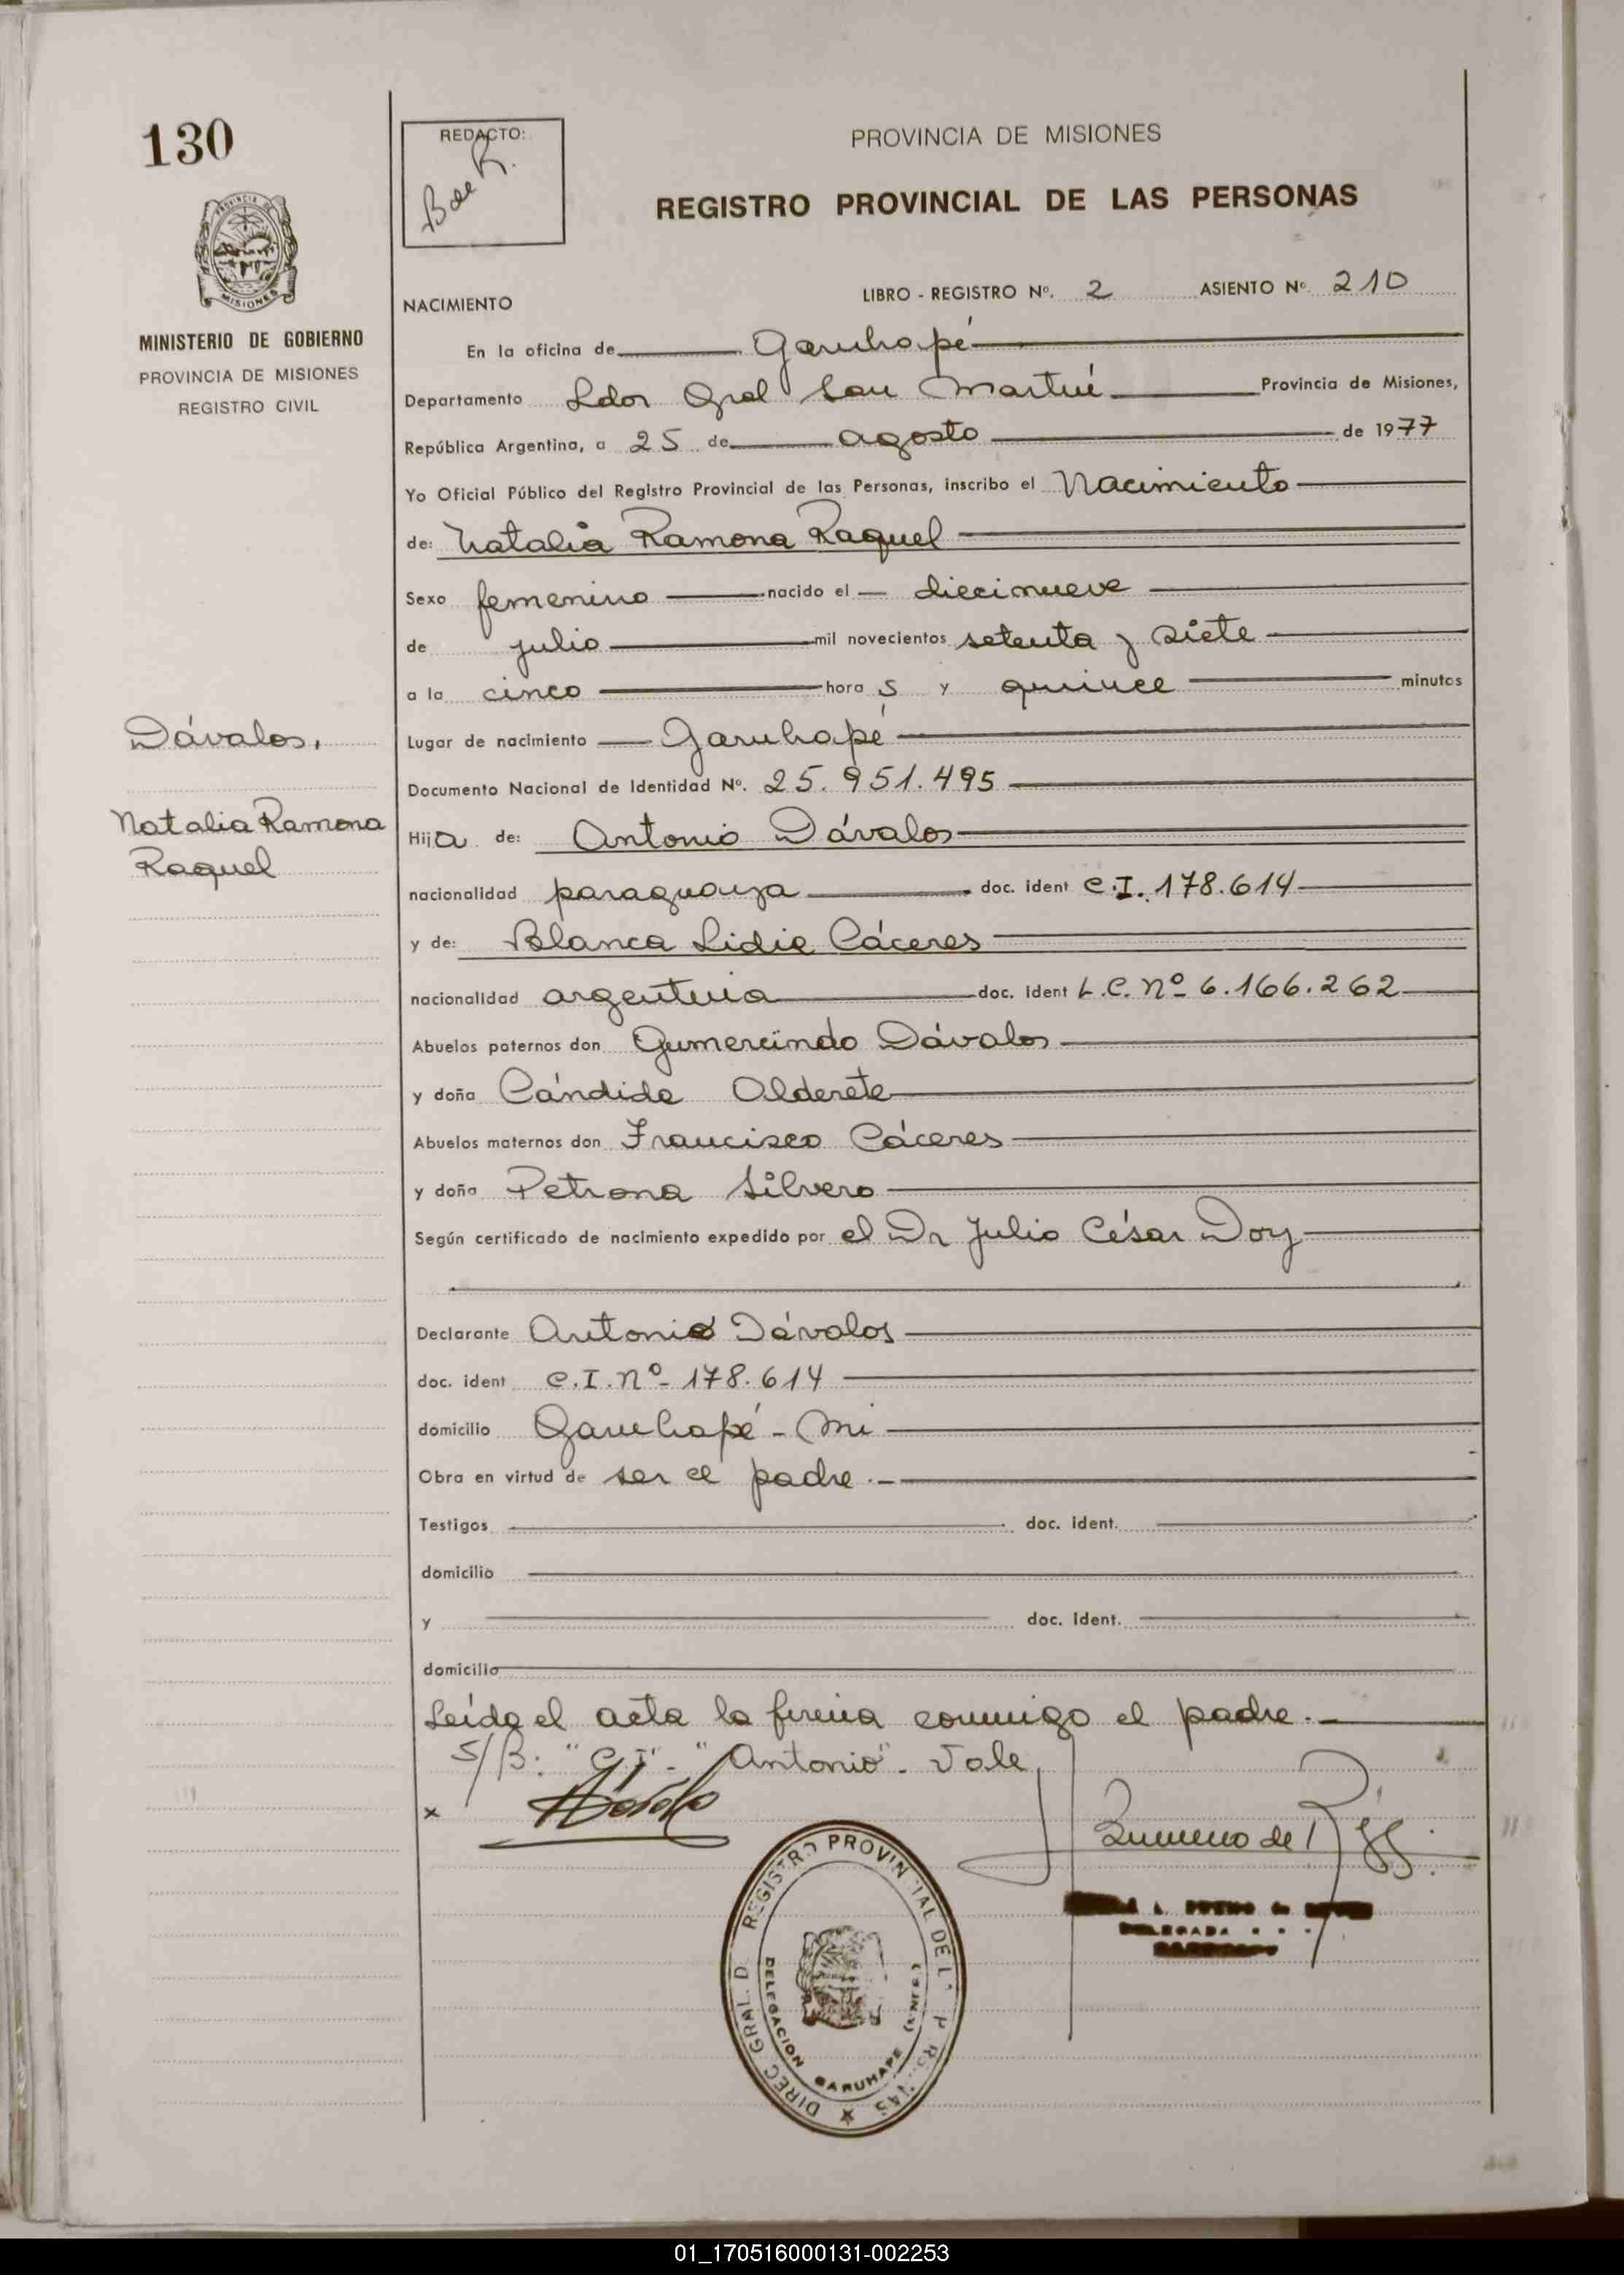 130
REDACTO:
B de R.
PROVINCIA DE MISIONES
REGISTRO PROVINCIAL DE LAS PERSONAS
PROVINCIA DE
MISIONES
MINISTERIO DE GOBIERNO
PROVINCIA DE MISIONES
REGISTRO CIVIL
NACIMIENTO
LIBRO - REGISTRO Nº. 2 ASIENTO Nº 210
En la oficina de Garuhapé
Departamento Ldor Gral San Martín Provincia de Misiones,
República Argentina, a 25 de agosto de 1977
Yo Oficial Público del Registro Provincial de las Personas, inscribo el Nacimiento
de: Natalia Ramona Raquel
Sexo femenino nacido el diecinueve
de julio mil novecientos setenta y siete
a la cinco hora s y quince minutos
Dávalos,
Natalia Ramona
Raquel
Lugar de nacimiento Garuhapé
Documento Nacional de Identidad Nº. 25.951.495
Hija de: Antonio Dávalos
nacionalidad paraguaya doc. ident C.I. 178.614
y de: Blanca Lidia Cáceres
nacionalidad argentina doc. ident L.C. Nº 6.166.262
Abuelos paternos don Gumercindo Dávalos
y doña Cándida Alderete
Abuelos maternos don Francisco Cáceres
y doña Petrona Silvero
Según certificado de nacimiento expedido por el Dr Julio César Doy
Declarante Antonio Dávalos
doc. ident C.I. Nº 178.614
domicilio Garuhapé - Mi
Obra en virtud de ser el padre.-
Testigos doc. ident.
domicilio
y doc. ident.
domicilio
Leída el acta la firma conmigo el padre.-
S/B: "C I" - "Antonio" - Vale
x
DIREC GRAL D REGISTRO PROVINCIAL DE L P RSONAS
DELEGACION GARUHAPE
DELEGADA
01_170516000131-002253